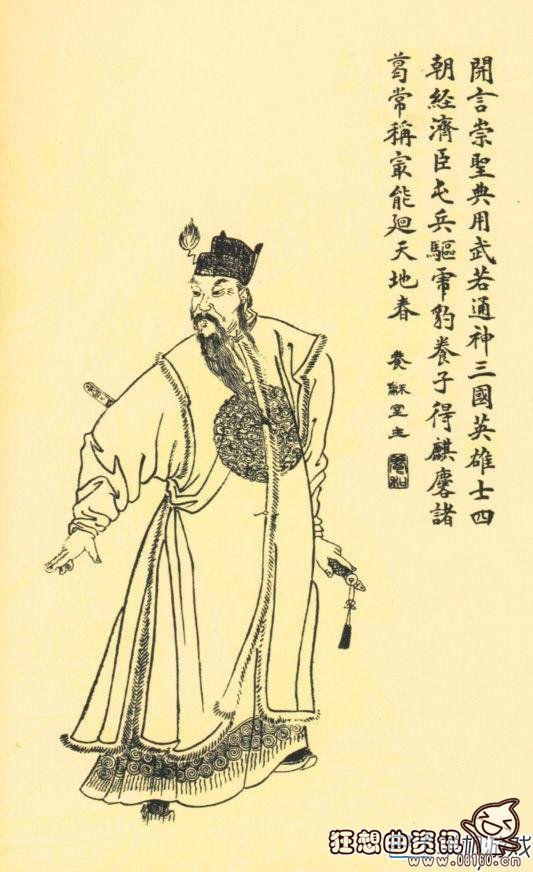 開言崇聖典用武若通神三國英雄士四
朝経濟臣屯兵驅帍豹養子得麒麐諸
葛常稱㝡能廻天地春
養龢室主
狂想曲资讯
www.08160.cn